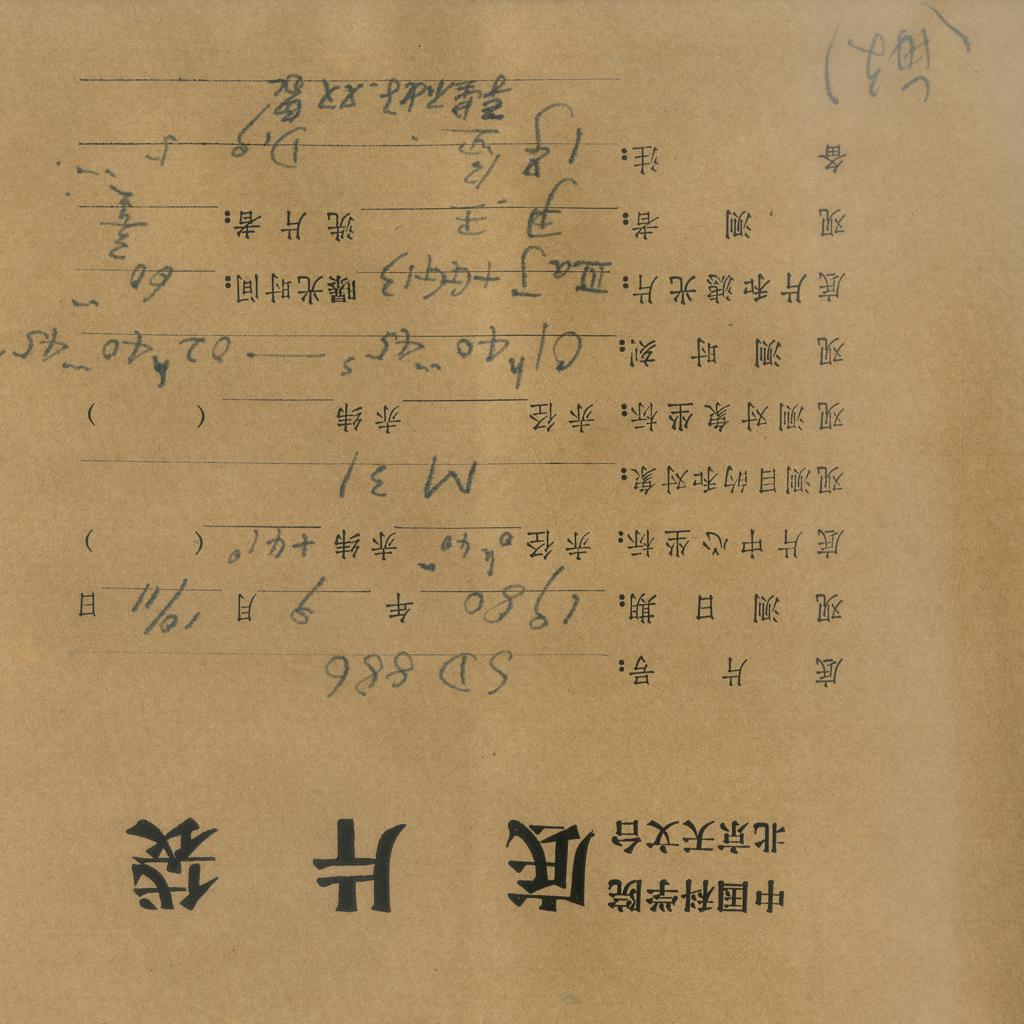 中国科学院
北京天文台
底片袋
底片号: SD 886
观测日期: 1980年9月10/11日
底片中心坐标: 赤径 0ʰ40ᵐ 赤纬 +41° ( )
观测目的和对象: M 31
观测对象坐标: 赤径 赤纬 ( )
观测时刻: 01ʰ40ᵐ45ˢ — 02ʰ40ᵐ45
底片和滤光片: IIIaJ+GG13 曝光时间: 60ᵐ
观测者: 洗片者:
备注: